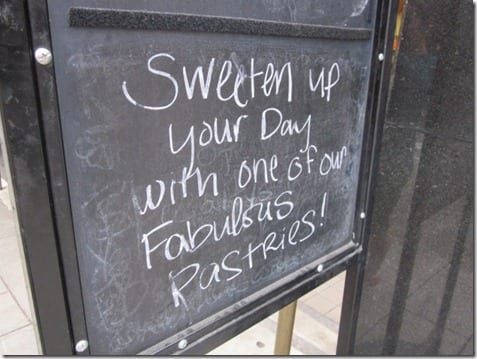 Sweeten up
your Day
with one of our
Fabulous
Pastries!